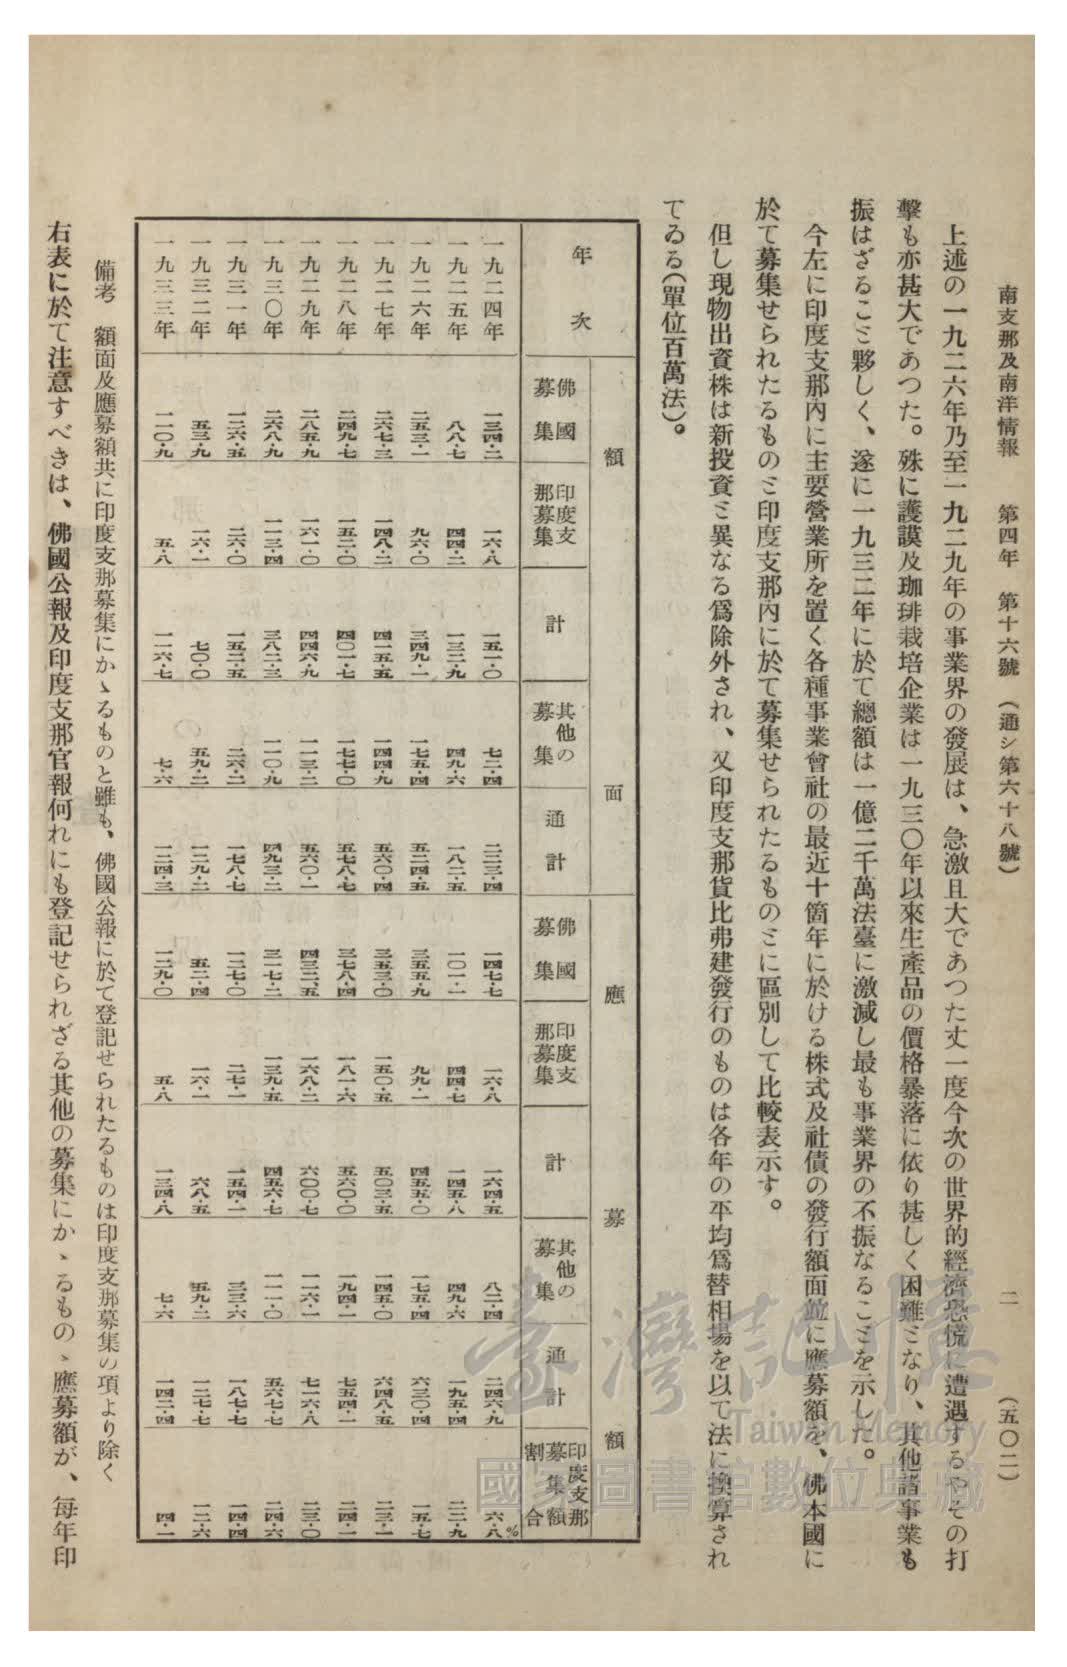 南支那及南洋情報 第四年 第十六號 (通シ第六十八號) 二 (五〇二)
上述の一九二六年乃至一九二九年の事業界の發展は、急激且大であつた丈一度今次の世界的經濟恐慌に遭遇するやその打
擊も亦甚大であつた。殊に護謨及珈琲栽培企業は一九三〇年以來生産品の價格暴落に依り甚しく困難ミなり、其他諸事業も
振はざるこミ夥しく、遂に一九三二年に於て總額は一億二千萬法臺に激減し最も事業界の不振なるこミを示した。
今左に印度支那内に主要營業所を置く各種事業會社の最近十箇年に於ける株式及社債の發行額面並に應募額を、佛本國に
於て募集せられたるものミ印度支那内に於て募集せられたるものミに區別して比較表示す。
但し現物出資株は新投資ミ異なる爲除外され、又印度支那貨比弗建發行のものは各年の平均爲替相場を以て法に換算され
てゐる(單位百萬法)。
額面 應募額
年次 佛國募集 印度支那募集 計 其他の募集 通計 佛國募集 印度支那募集 計 其他の募集 通計 印度支那募集額割合
一九二四年 一三四・二 一六・八 一五一・〇 七二・四 二二三・四 一四七・七 一六・八 一六四・五 八二・四 二四六・九 六・八%
一九二五年 八八・七 四四・二 一三二・九 四九・六 一八二・五 一〇一・一 四四・七 一四五・八 四九・六 一九五・四 二二・九
一九二六年 二五三・一 九六・〇 三四九・一 一七五・四 五二四・五 三五五・九 九九・一 四五五・〇 一七五・四 六三〇・四 一五・七
一九二七年 二六七・三 一四八・二 四一五・五 一四四・九 五六〇・四 三五三・〇 一五〇・五 五〇三・五 一四五・〇 六四八・五 二三・一
一九二八年 二四九・七 一五二・〇 四〇一・七 一七七・〇 五七八・七 三七八・四 一八一・六 五六〇・〇 一九四・一 七五四・一 二四・一
一九二九年 二八五・九 一六一・〇 四四六・九 一一三・二 五六〇・一 四三二、五 一六八・二 六〇〇・七 一一六・一 七一六・八 二三・〇
一九三〇年 二六八・九 一一三・四 三八二・三 一一〇・九 四九三・二 三一七・二 一三九・五 四五六・七 一一一・〇 五六七・七 二四・六
一九三一年 一二六・五 二六・〇 一五二・五 二六・二 一七八・七 一二七・〇 二七・一 一五四・一 三三・六 一八七・七 一四・四
一九三二年 五三・九 一六・一 七〇・〇 五九・二 一二九・二 五二・四 一六・一 六八・五 五九・二 一二七・七 一二・六
一九三三年 一一〇・九 五・八 一一六・七 七・六 一二四・三 一二九・〇 五・八 一三四・八 七・六 一四二・四 四・一
備考 額面及應募額共に印度支那募集にかゝるものと雖も、佛國公報に於て登記せられたるものは印度支那募集の項より除く
右表に於て注意すべきは、佛國公報及印度支那官報何れにも登記せられざる其他の募集にかゝるものゝ應募額が、每年印
臺灣記憶
Taiwan Memory
國家圖書館數位典藏